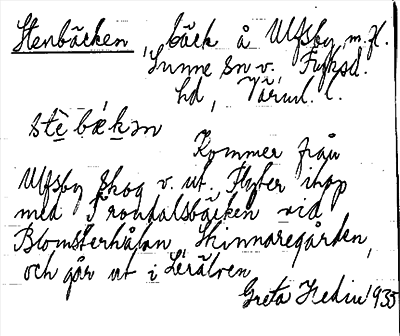 Stenbäcken, bäck å Ulfsby m. fl.
Sunne sn v. Fryksd.
hd, Värml. l.
stè bæ̀kən
Kommer från
Ulfsby Skog v. ut. Flyter ihop
med Trondalsbäcken vid
Blomsterhålan, Skinnaregården,
och går ut i Lerälven
Greta Hedin 1935